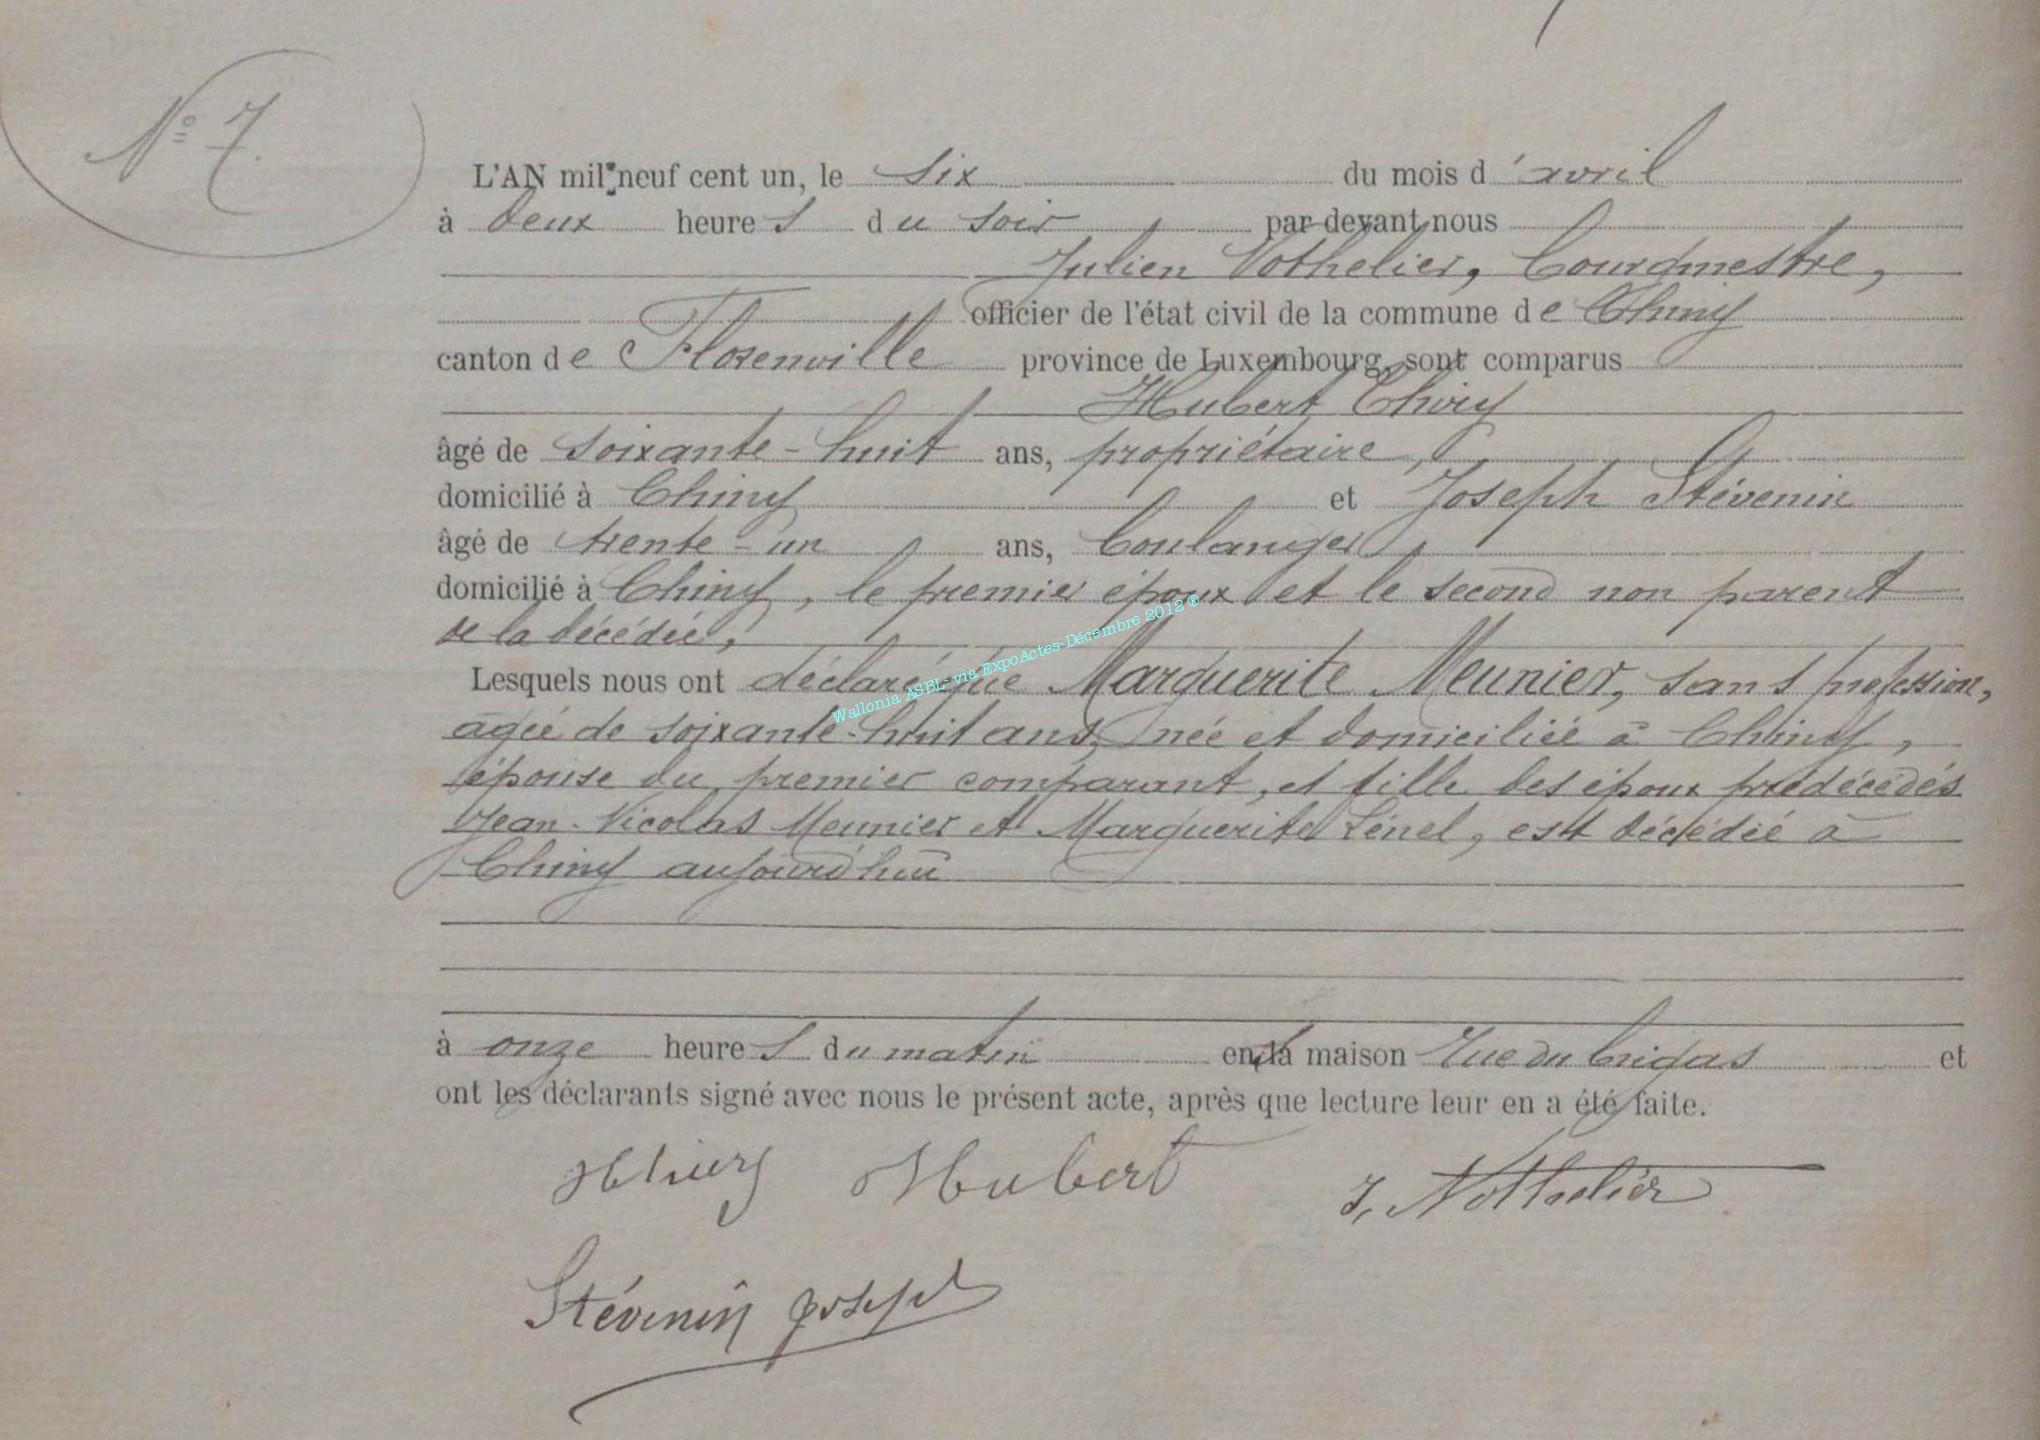 N° 7.
L'AN mil neuf cent un, le six du mois d'avril
à deux heures du soir par devant nous
Julien Nothelier, Bourgmestre,
officier de l'état civil de la commune de Chiny
canton de Florenville province de Luxembourg, sont comparus
Hubert Thiry
âgé de soixante-huit ans, propriétaire,
domicilié à Chiny et Joseph Stévenin
âgé de trente-un ans, boulanger
domicilié à Chiny, le premier époux et le second non parent
de la décédée,
Lesquels nous ont déclaré que Marguerite Meunier, sans profession,
âgée de soixante-huit ans, née et domiciliée à Chiny,
épouse du premier comparant, et fille des époux prédécédés
Jean-Nicolas Meunier et Marguerite Lénel, est décédée à
Chiny aujourd'hui
à onze heures du matin en sa maison Rue du et
ont les déclarants signé avec nous le présent acte, après que lecture leur en a été faite.
Thiry Hubert J. Nothelier
Stévenin Joseph
Wallonia ASBL- via ExpoActes-Décembre 2012®